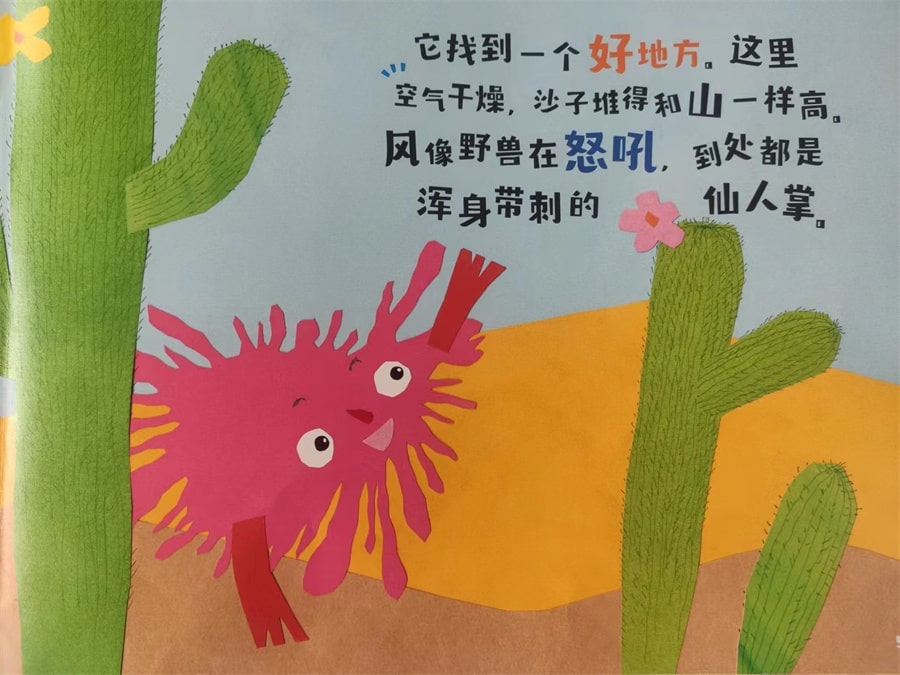 它找到一个好地方。这里
空气干燥，沙子堆得和山一样高。
风像野兽在怒吼，到处都是
浑身带刺的 仙人掌。